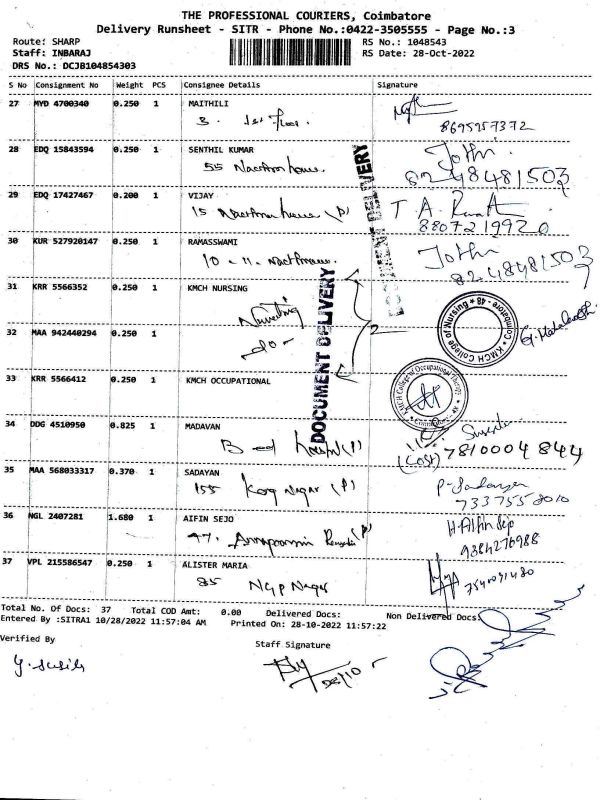 THE PROFESSIONAL COURIERS, Coimbatore
Delivery Runsheet - SITR - Phone No.:0422-3505555 - Page No.:3
Route: SHARP
RS No.: 1048543
Staff: INBARAJ
RS Date: 28-Oct-2022
DRS No.: DCJB104854303
S No Consignment No Weight PCS Consignee Details Signature
27 MYD 4700340 0.250 1 MAITHILI
8695957372
28 EDQ 15843594 0.250 1 SENTHIL KUMAR
55
Jothi
8248481503
29 EDQ 17427467 0.200 1 VIJAY
15
T A
8807219920
30 KUR 527920147 0.250 1 RAMASSWAMI
10 - 11
Jothi
8248481503
31 KRR 5566352 0.250 1 KMCH NURSING
Nursing
32 MAA 942440294 0.250 1
-do-
KMCH College of Nursing
Coimbatore - 48
33 KRR 5566412 0.250 1 KMCH OCCUPATIONAL
KMCH College of Occupational Therapy
DOCUMENT DELIVERY
DOCUMENT DELIVERY
34 DDG 4510950 0.825 1 MADAVAN
7810004844
35 MAA 568033317 0.370 1 SADAYAN
155 Nagar (P)
7337558010
36 NGL 2407281 1.680 1 AIFIN SEJO
47.
9384276988
37 VPL 215586547 0.250 1 ALISTER MARIA
85 NGP Nagar
7540091480
Total No. Of Docs: 37 Total COD Amt: 0.00 Delivered Docs: Non Delivered Docs:
Entered By :SITRA1 10/28/2022 11:57:04 AM Printed On: 28-10-2022 11:57:22
Verified By
Staff Signature